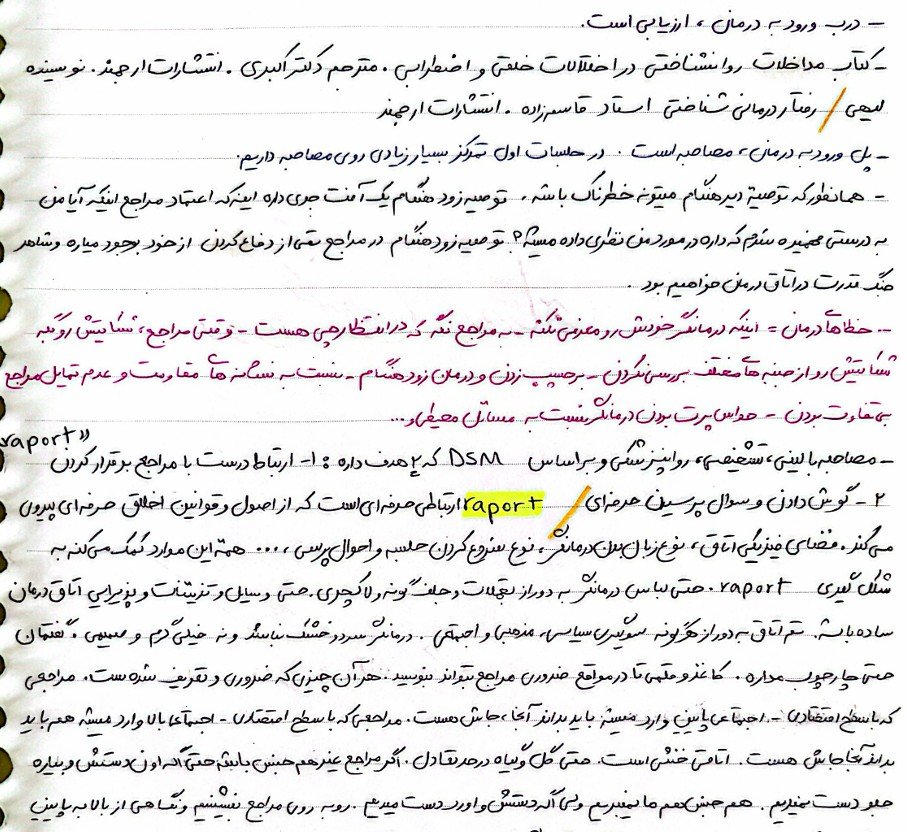 - درب ورود به درمانی، ارزیابی است.
- کتاب مداخلات روانشناختی در اختلالات خلقی و اضطرابی. مترجم دکتر اکبری. انتشارات ارجمند. نویسنده
لیهی / رفتار درمانی شناختی استاد قاسم زاده. انتشارات ارجمند
- پل ورود به درمانی، مصاحبه است. در جلسات اول تمرکز بسیار زیادی روی مصاحبه داریم.
- همانطور که توصیۀ دیر هنگام میتونه خطرناک باشه، توصیه زود هنگام یک آفت جدی داره اینه که اعتماد مراجع اینکه آیا من
به درستی فهمیده شدم که داره در مورد من نظری داده میشه؟ توصیه زود هنگام در مراجع نقی از دفاع کردن از خود بوجود میاره و شاهد
جنگ قدرت در اتاق درمان خواهیم بود.
- خطاهای درمان = اینکه درمانگر خودش رو معرفی نکنه - به مراجع نگه که در انتظار چی هست - وقتی مراجع، شکایتش رو گه
شکایتش رو از جنبه های مختلف بررسی نکردن - برچسب زدن و درمان زود هنگام - نسبت به نشانه های مقاومت و عدم تمایل مراجع
بی تفاوت بودن - حواس پرت بودن درمانگر نسبت به مسائل محیطی و...
- مصاحبه بالینی، تشخیصی، روانپزشکی و بر اساس DSM که ۲ هدف داره: ۱- ارتباط درست با مراجع برقرار کردن "raport"
۲- گوش دادن و سوال پرسیدن حرفه ای / raport ارتباطی حرفه ای است که از اصول و قوانین اخلاق حرفه ای پیروی
می کند. فضای فیزیکی اتاق، نوع زبان بدن درمانگر، نوع شروع کردن جلسه و احوال پرسی، ... همۀ این موارد کمک می کنه به
شکل گیری raport. حتی لباس درمانگر به دور از تجملات و جلف گونه و لاکچری. حتی وسایل و تزئینات و پذیرایی اتاق درمان
ساده باشه. تم اتاق به دور از هرگونه سوگیری سیاسی، مذهبی و اجتماعی. درمانگر سرد و خشک نباشد و نه خیلی گرم و صمیمی. گفتمان
حتی چارچوب مداره. کاغذ و قلمی تا در مواقع ضروری مراجع بتواند بنویسد. هر آن چیزی که ضروری و تعریف شده ست. مراجعی
که با سطح اقتصادی - اجتماعی پایین وارد میشه باید بداند آنجا، جاش هست. مراجعی که با سطح اقتصادی - اجتماعی بالا وارد میشه هم باید
بداند آنجا جاش هست. اتاقی خنثی است. حتی گل و گیاه در حد تعادل. اگر مراجع غیر هم جنس باشه حتی اگه اون دستش و بیاره
جلو دست نمیدیم. هم جنس هم ما نمیبریم ولی اگه دستش و اورد دست میدیم. روبه روی مراجع نشینیم و نگاهی از بالا به پایین